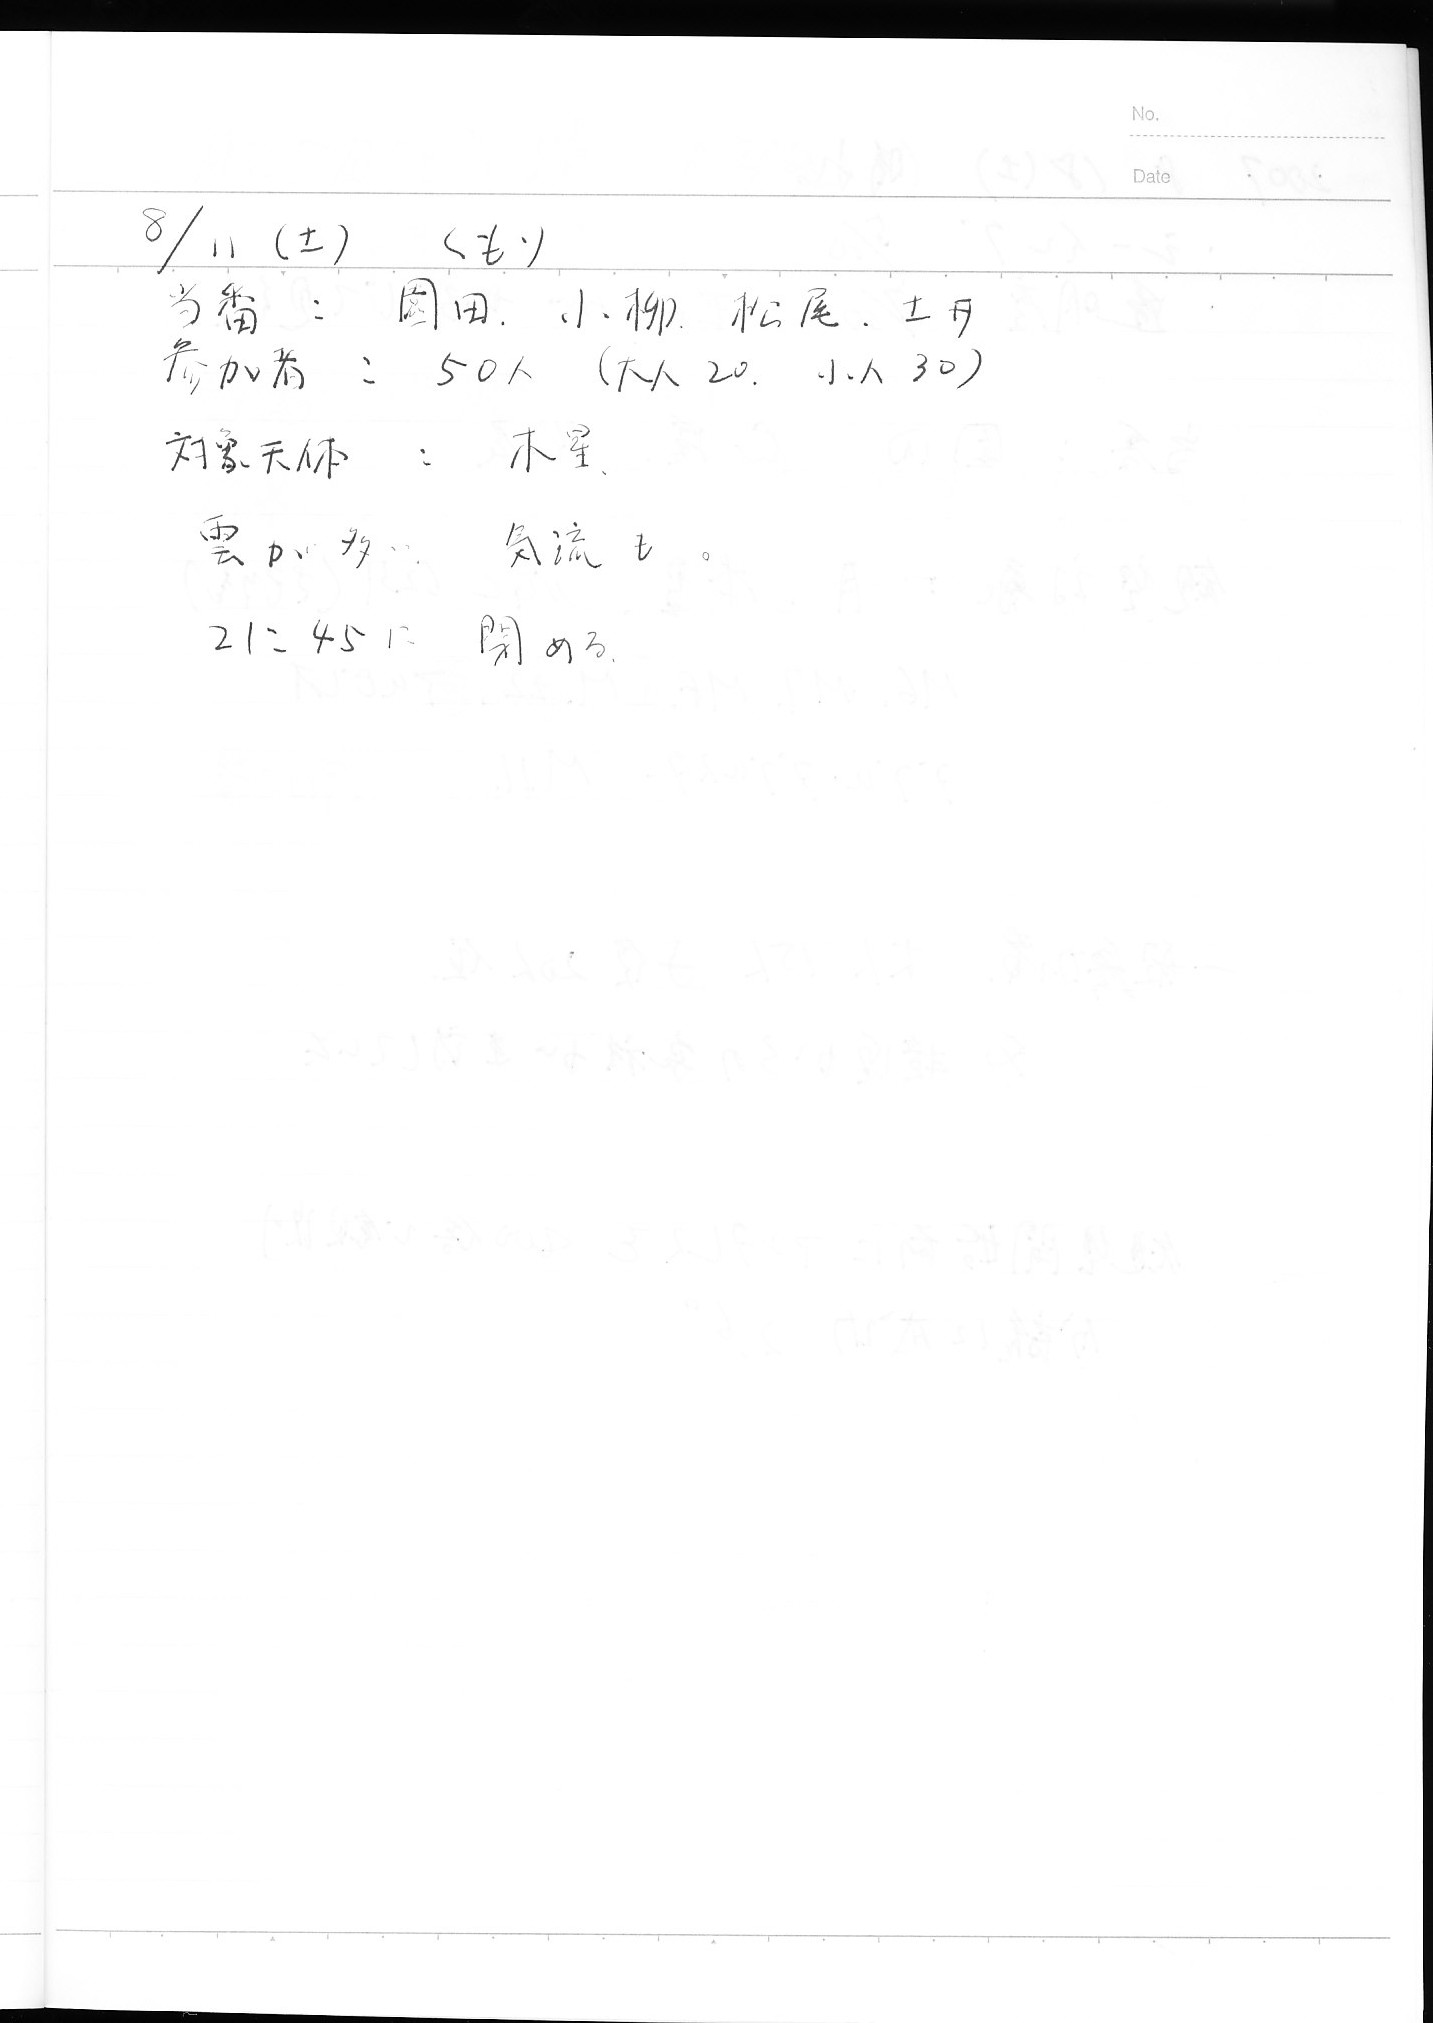 No.
Date
8/11 (土) くもり
当番 : 園田、小柳、松尾、土丹
参加者 : 50人 (大人20、小人30)
対象天体 : 木星、
雲が多い、気流も。
21:45に閉める。